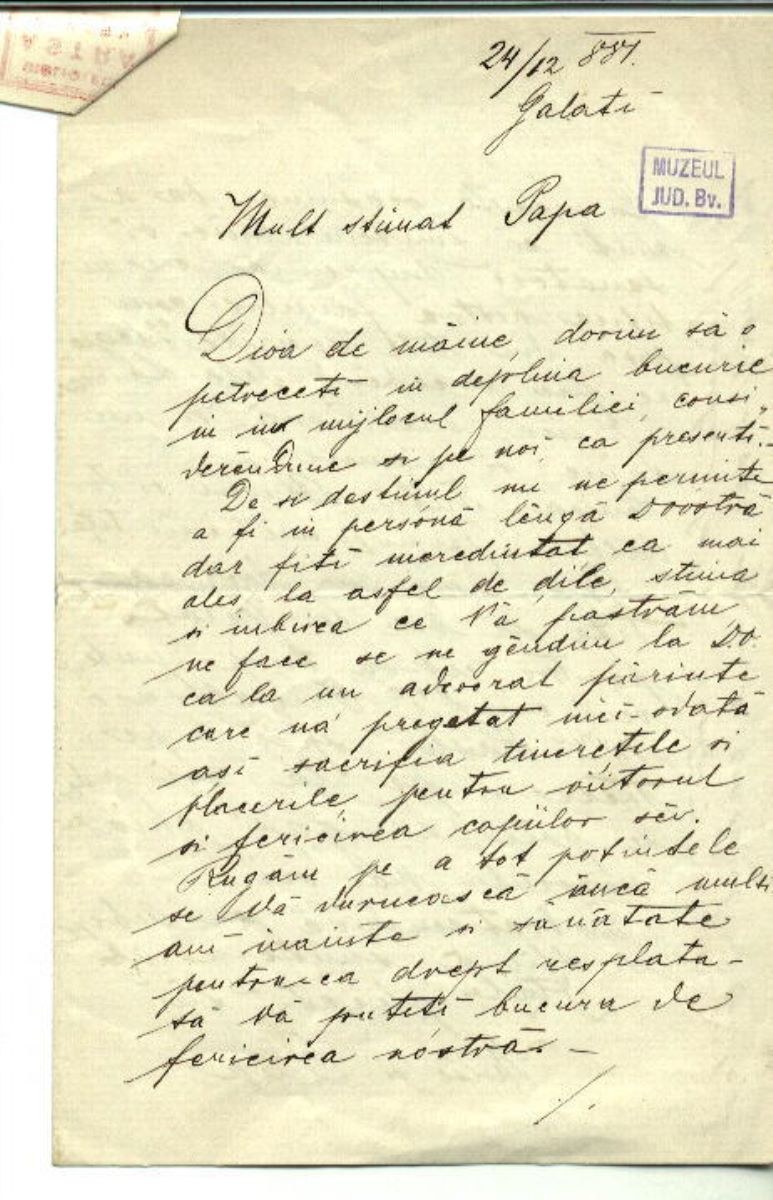 24/12 881.
Galati
MUZEUL
JUD. Bv.
Mult stimat Papa
Dioa de mâine, dorim să o
petreceti in deplina bucurie
in mijlocul familiei, consi„
derêndune si pe noi, ca presenti.-
De si destinul nu ne permite
a fi in personă lêngă Dvostră
dar fiti incredintat ca mai
ales la asfel de dile, stima
si iubirea ce Vă pastrăm,
ne face se ne gêndim la D.v.
ca la un adeverat părinte
care ná pregetat nici-odată
asi sacrifia tinerețele si
placerile pentru viitorul
si fericirea copiilor sêi.
Rugăm pe a tot potintele
se Vă duruească încă multi
ani inainte si sanătate
pentruca drept resplata-
să Vă puteti bucura de
fericirea nóstră. -
./.